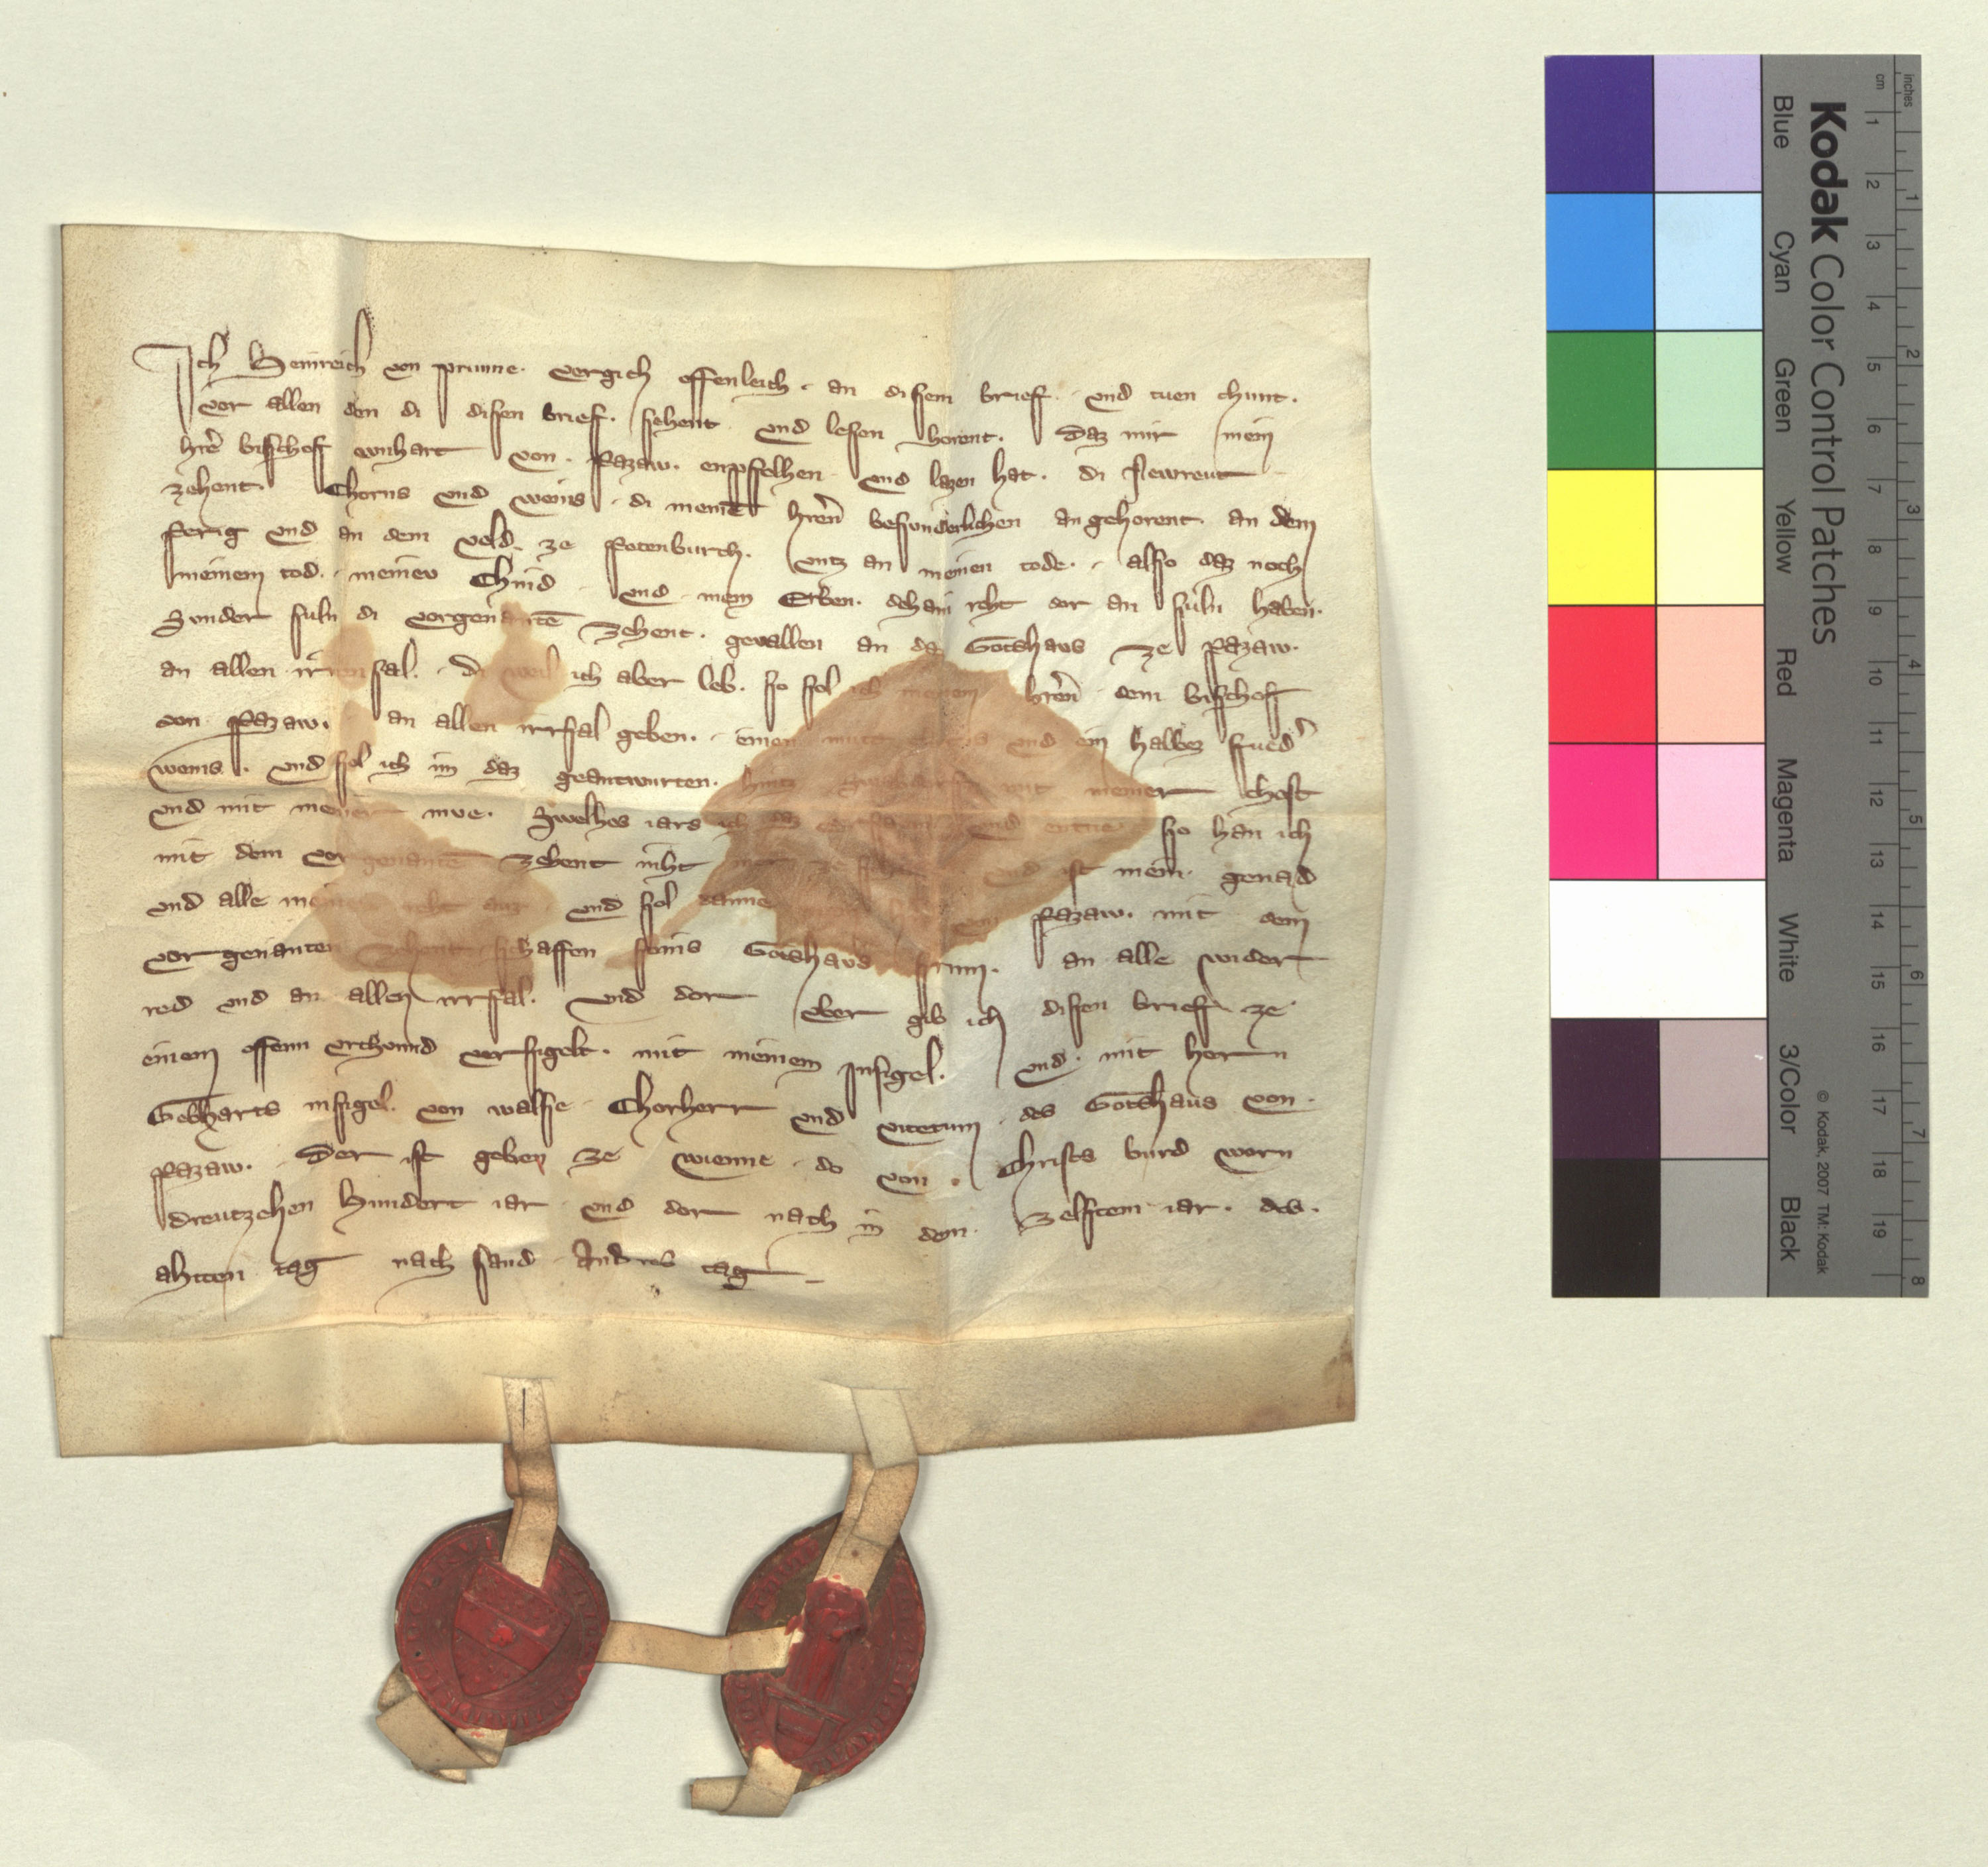 Ich Heinreich von prunne. vergich offenleich. an disem brief. vnd tuen chunt.
vor allen den di disen brief. sehent vnd lesen horent. Daz mir mein
hrē bischof wnhart von. Pazaw. enpfelhen vnd lazen hat. di Newreut
zehent. Chorns vnd weins. di meinē hrēn besunderlichen angehorent. an dem
perig vnd an dem veld. ze Potenburch. vntz an meinen tode. also daz noch
meinem tod. meinev Chind vnd mein Erben. dehain reht dor an suln haben.
Sunder suln di vorgenantē zehent. gevallen an daz Gotshaus ze Pazaw.
an allen irrensal. Di weil ich aber leb. so sol ich meinem hrēn dem bischof
von Pazaw. an allen irrsal geben. einen mutt chorns vnd ein halbez fued
weins. vnd sol ich im daz geantwurten. hintz mit meiner chost
vnd mit meiner mve. Swelhes iars ich daz vnd so han ich
mit dem vorgenantē zehent niht mer ze schaffen vnd ist mein genad
vnd alle meinev reht auz vnd sol danne von Pazaw. mit dem
vorgenanten zehent schaffen seins Gotshaus frum. an alle wider
red vnd an allen irrsal. Vnd dor vber gib ich disen brief ze
einem offenn vrchvnnd versigelt. mit meinem Insigel. vnd mit hern
Gebharts insigel. von walsse Chorherr vnd vitetum des Gotshaus von.
Pazaw. Der ist geben ze Wienne. do von. Christs burd worn
dreutzehen Hundert iar vnd dor nach in dem. Zelftem iar. des.
ahtten tag nach sand Andres tag
Kodak Color Control Patches
Blue Cyan Green Yellow Red Magenta White 3/Color Black
© Kodak, 2007 TM: Kodak
cm 1 2 3 4 5 6 7 8 9 10 11 12 13 14 15 16 17 18 19
inches 1 2 3 4 5 6 7 8